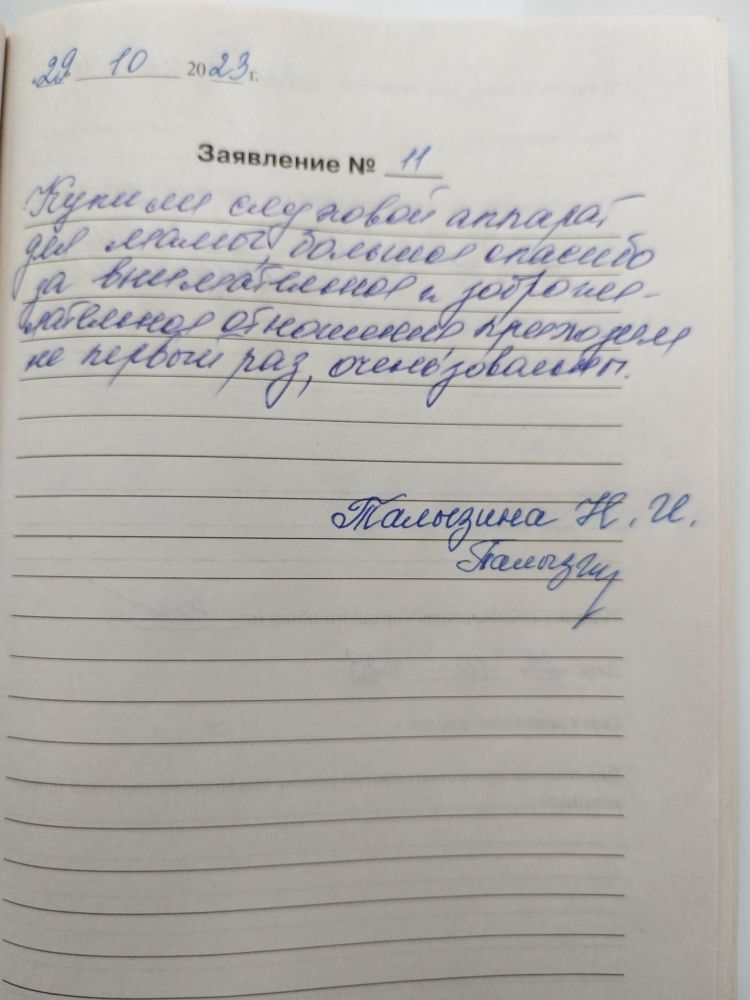 „29" 10 2023 г.
Заявление № 11
Купили слуховой аппарат
для мамы, большое спасибо
за внимательное и доброже-
лательное отношение, приходим
не первый раз, очень довольны.
Талызина Н. И.